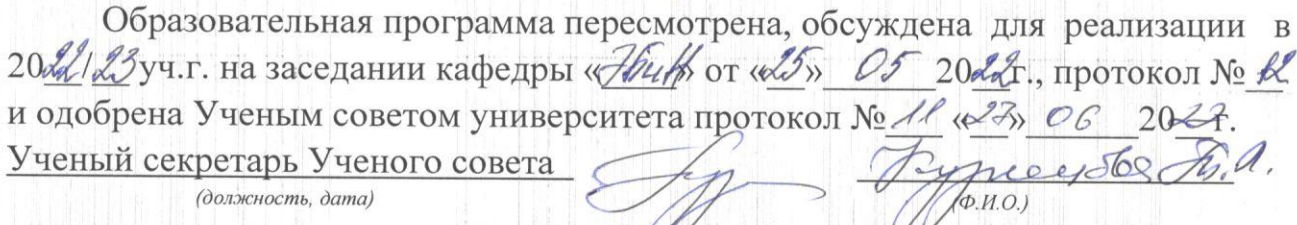 Образовательная программа пересмотрена, обсуждена для реализации в
2022/23уч.г. на заседании кафедры « » от «25» 05 2022г., протокол № 12
и одобрена Ученым советом университета протокол № 11 «27» 06 20 г.
Ученый секретарь Ученого совета
(должность, дата) (Ф.И.О.)